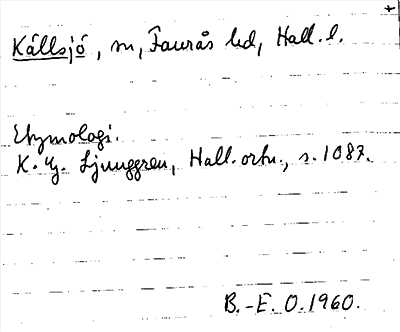 Källsjö, sn, Faurås hd, Hall. l.
Etymologi.
K. G. Ljunggren, Hall. ortn., s. 1087.
B.-E. O. 1960.